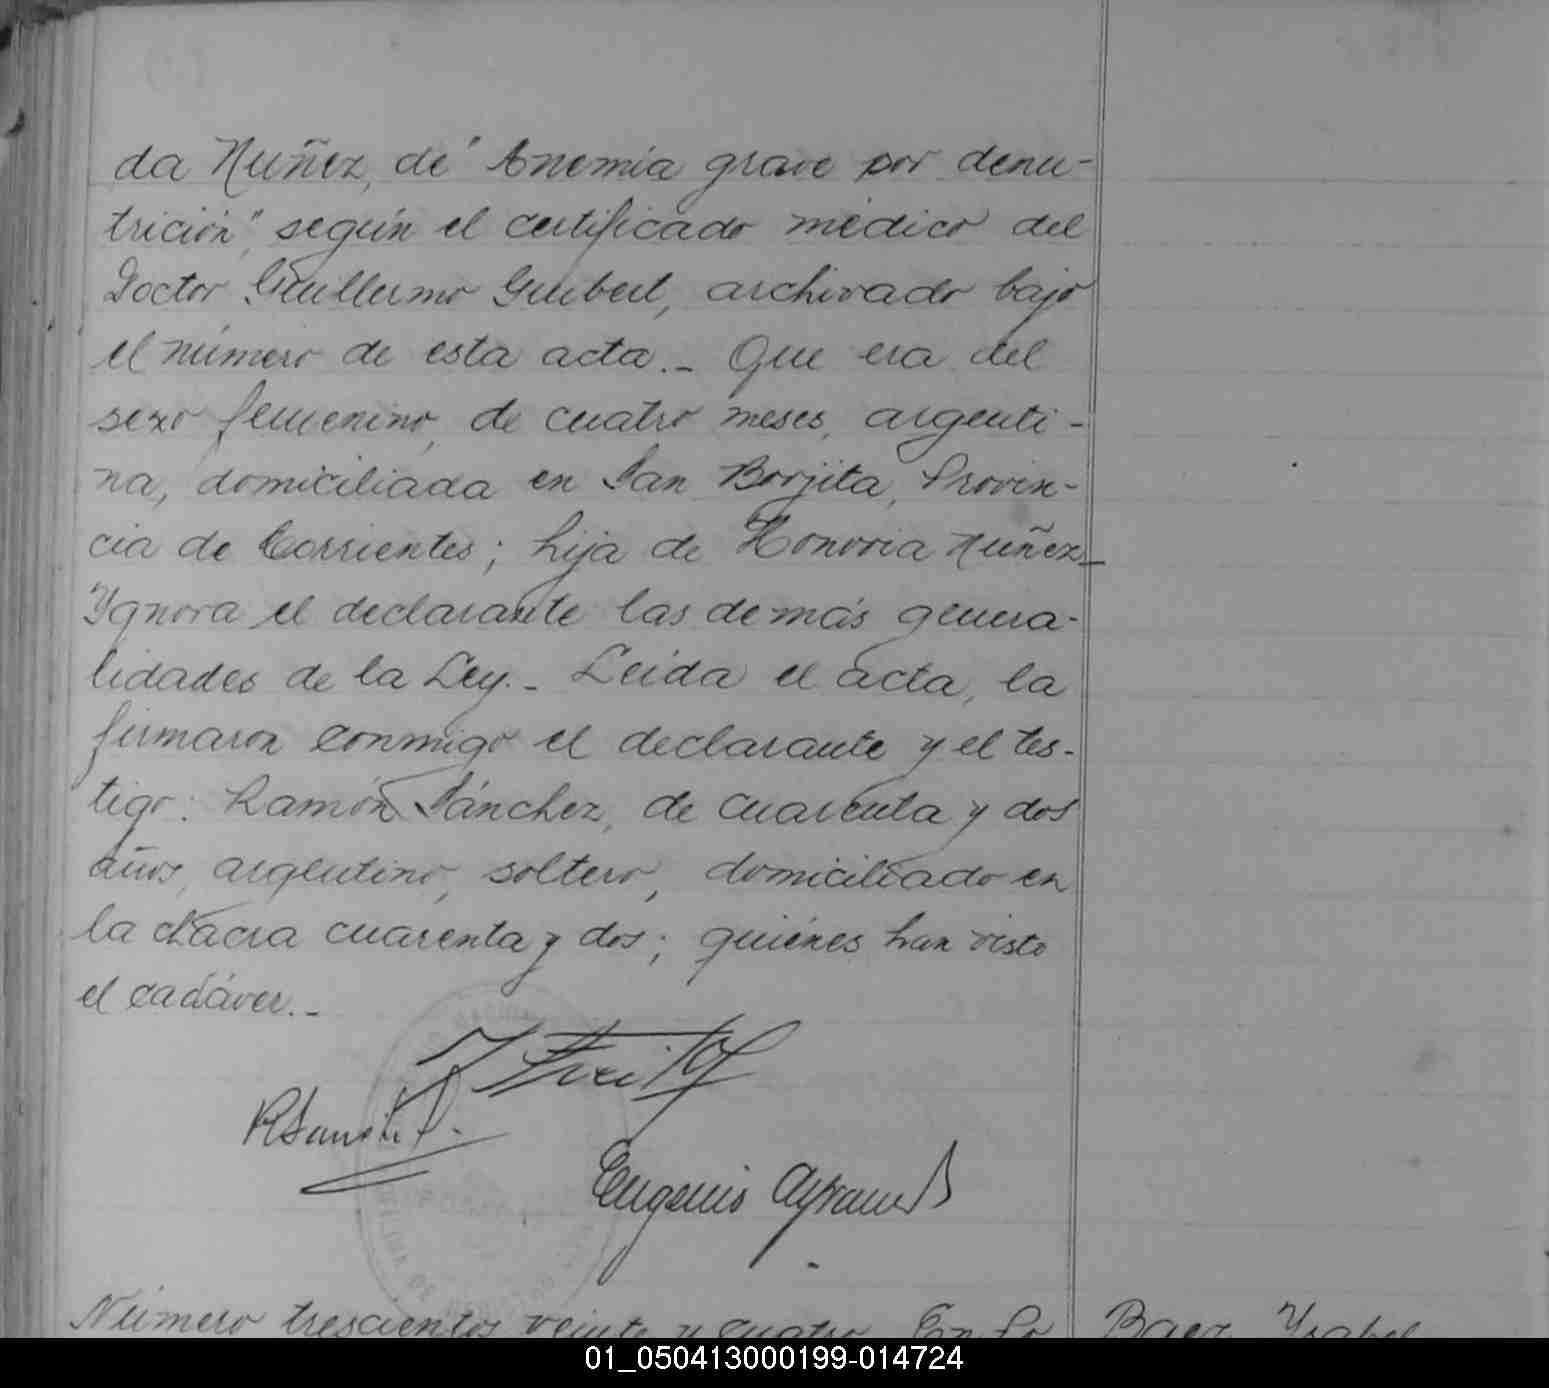 da Nuñez, de "Anemia grave por denu-
trición", según el certificado médico del
Doctor Guillermo Guibert, archivado bajo
el número de esta acta._ Que era del
sexo femenino, de cuatro meses, argenti-
na, domiciliada en San Borjita, Provin-
cia de Corrientes; hija de Honoria Nuñez_
Ygnora el declarante las demás genera-
lidades de la Ley._ Leida el acta, la
firmaron conmigo el declarante y el tes-
tigo: Ramón Sánchez, de cuarenta y dos
años, argentino, soltero, domiciliado en
la chacra cuarenta y dos; quiénes han visto
el cadáver._
Eugenio
Número trescientos veinte y cuatro. En
Baez, Ysabel
01_050413000199-014724